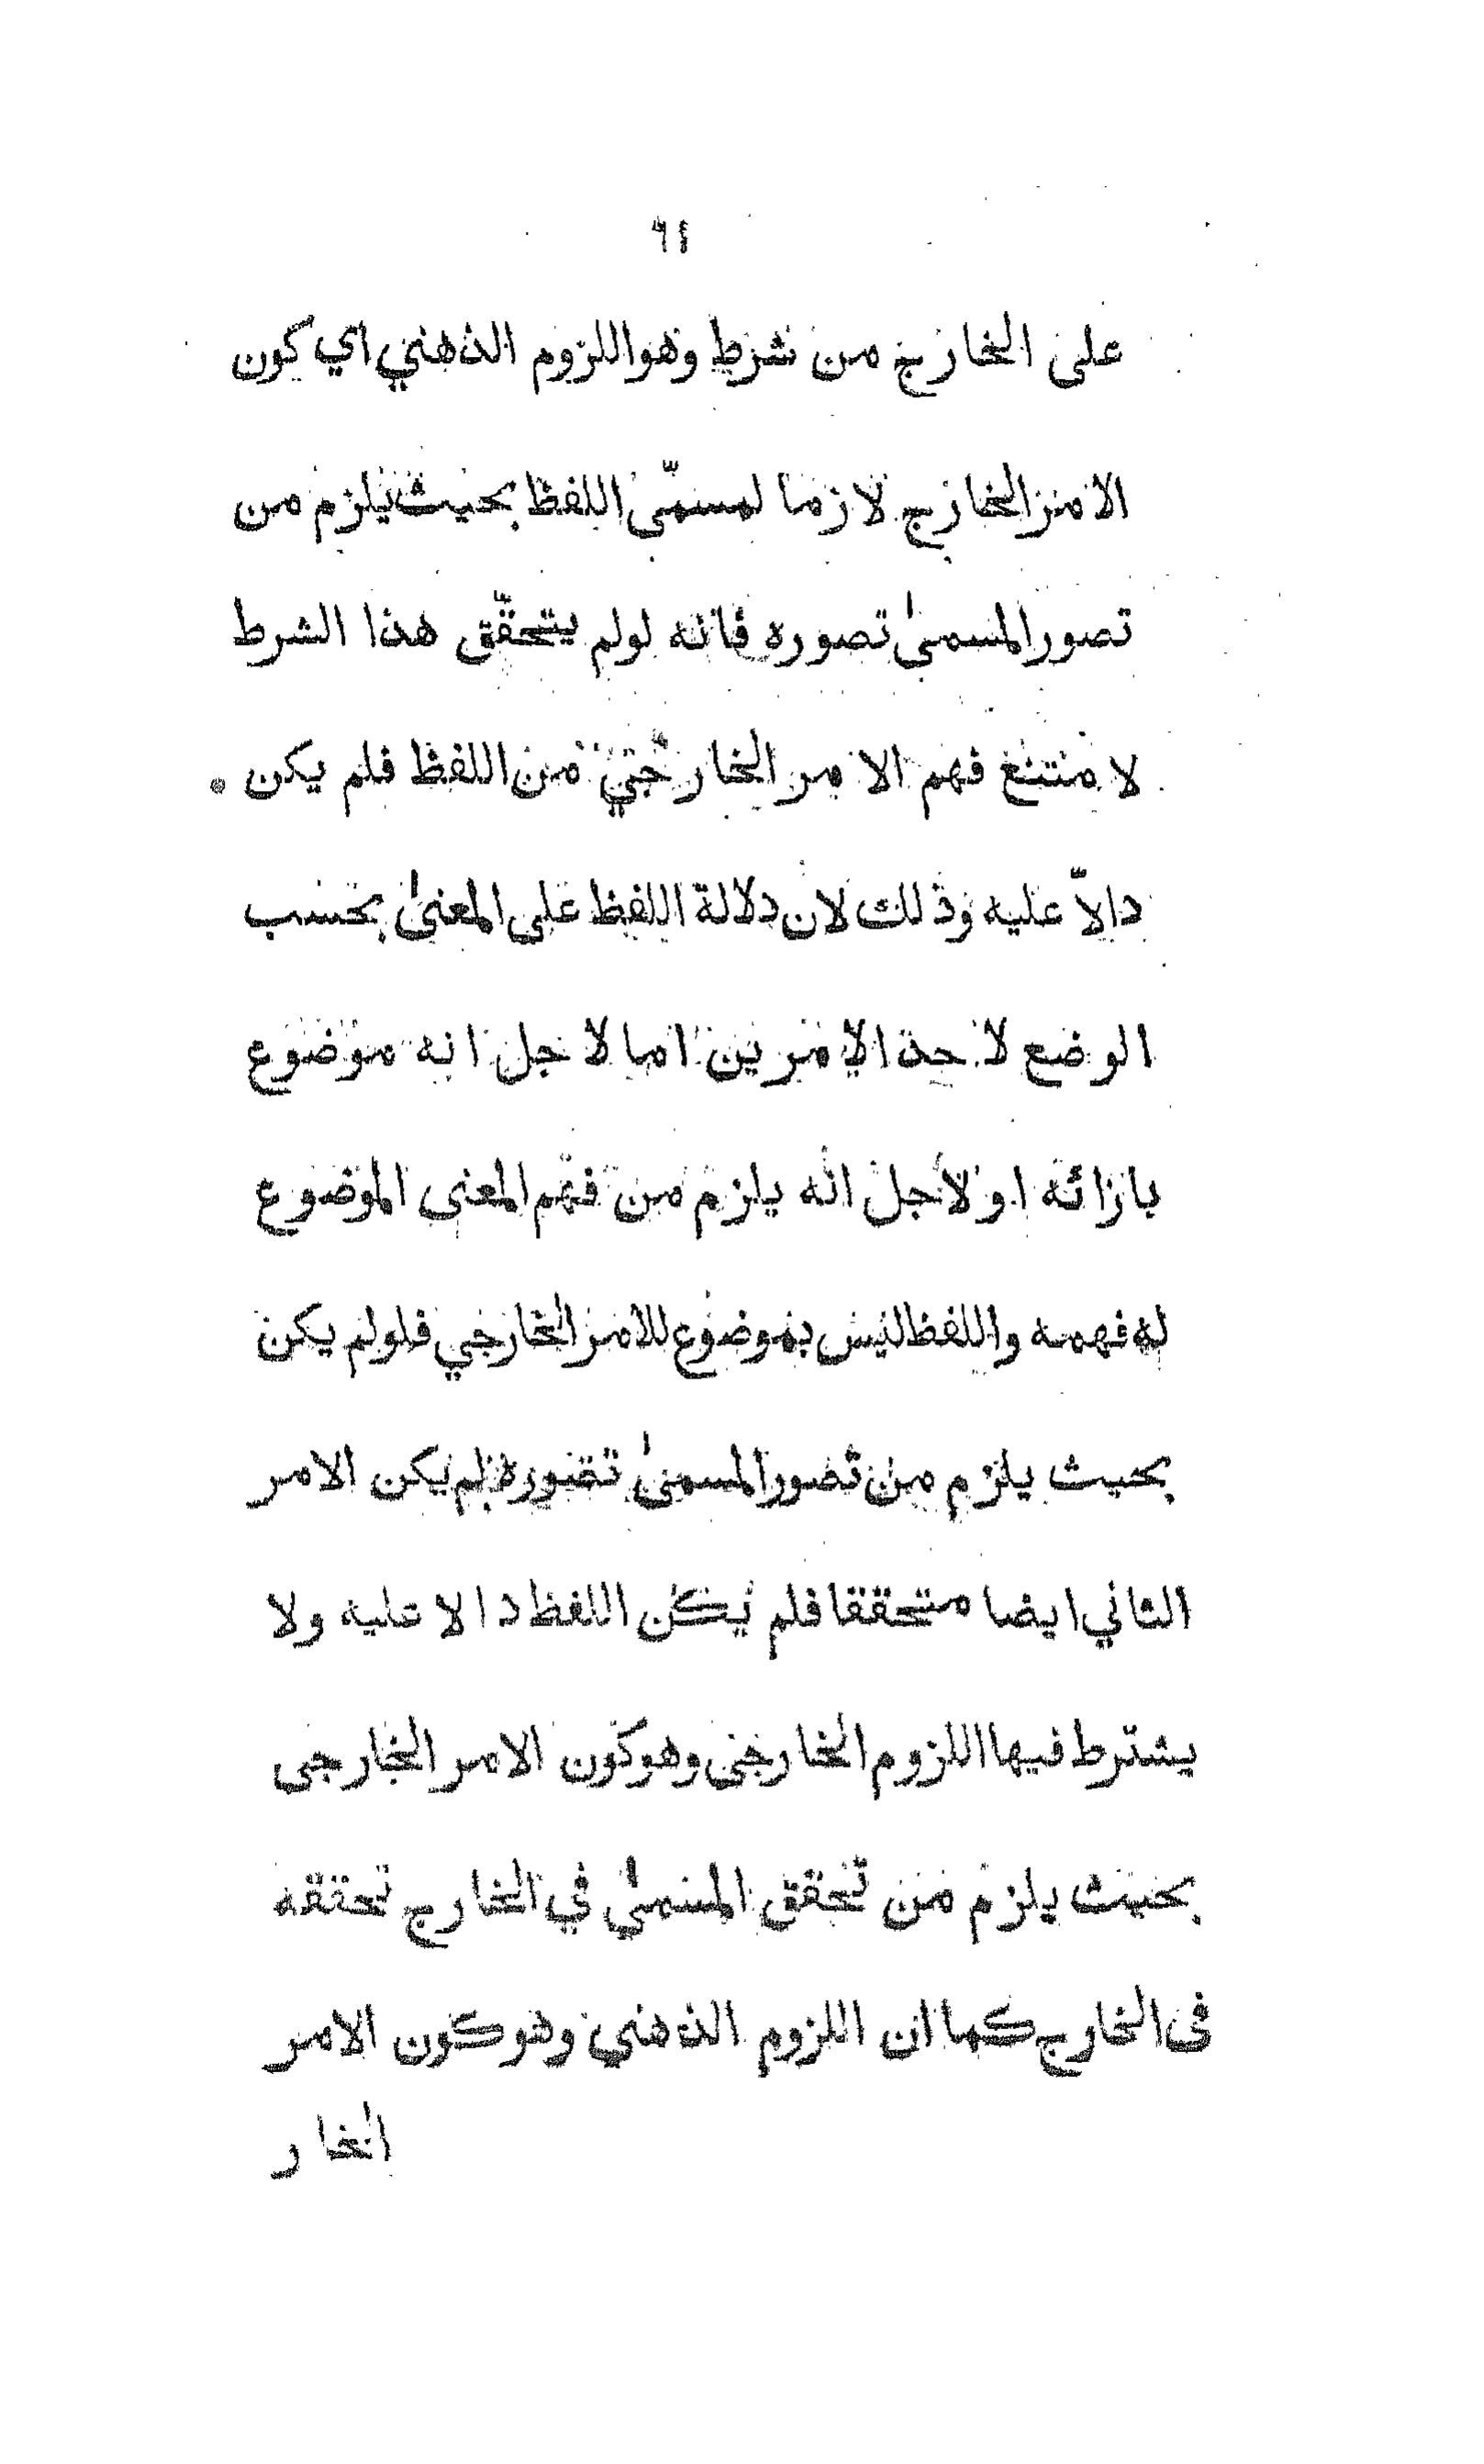 ٦٤
على الخارج من شرط وهو اللزوم الذهني اي كون
الامر الخارج لازما لمسمّى اللفظ بحيث يلزم من
تصور المسمى تصوره فانه لولم يتحقّق هذا الشرط
لامتنع فهم الامر الخارجي من اللفظ فلم يكن
دالاّ عليه وذلك لان دلالة اللفظ على المعنى بحسب
الوضع لاحد الامرين اما لاجل انه موضوع
بازائه او لاجل انه يلزم من فهم المعنى الموضوع
له فهمه واللفظ ليس بموضوع للامر الخارجي فلولم يكن
بحيث يلزم من تصور المسمى تصوره لم يكن الامر
الثاني ايضا متحققا فلم يكن اللفظ دالا عليه ولا
يشترط فيها اللزوم الخارجى وهو كون الامر الخارجى
بحيث يلزم من تحقق المسمى في الخارج تحققه
فى الخارج كما ان اللزوم الذهني وهو كون الامر
الخار